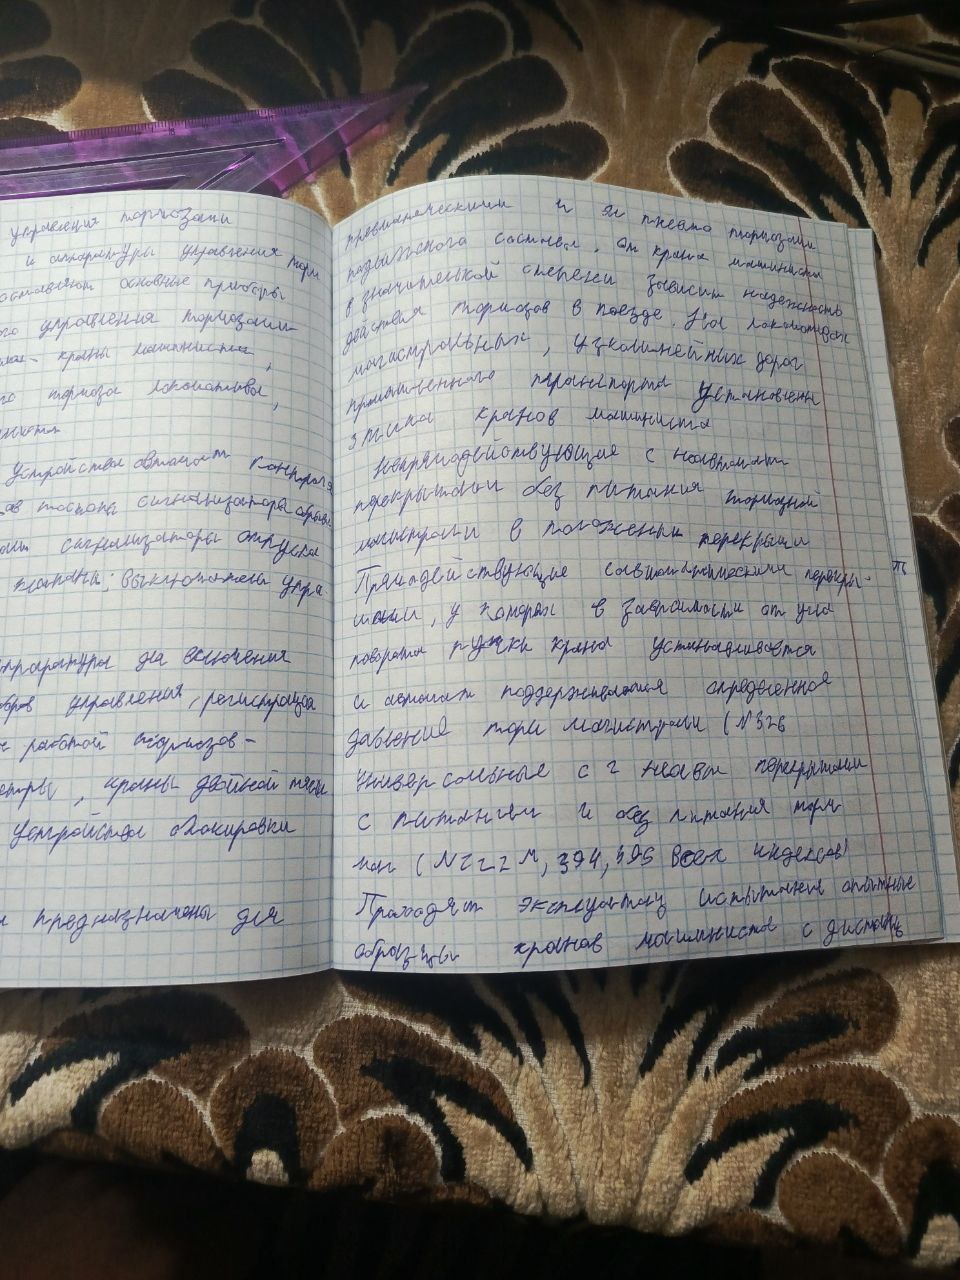 управления тормозами
и аппаратуры управления торм
составляют основные приборы
ого управления тормозами
краны машиниста,
го тормоза локомотива,
Устройства автомат контроля
сигнализатора обрыва
сигнализаторы отпуска
клапаны; выключатели упра
аппаратура для включения
управления, регистрация
работой тормозов-
, краны двойной тяги
устройства блокировки
и предназначены для
пневматическими и эл пневмо тормозами
подвижного состава. От крана машиниста
в значительной степени зависит надежность
действия тормозов в поезде. На локомотивах
магистральных, узколинейных дорог
промышленного транспорта установлены
3 типа кранов машиниста
Непрямодействующие с неавтомат
перекрытием без питания тормозной
магистрали в положении перекрыши
Прямодействующие с автоматическими перекры-
шами, у которых в зависимости от угла
поворота ручки крана устанавливается
и автомат поддерживается определенное
давление торм магистрали (N326
Универсальные с неавт перекрытием
с питанием и без питания торм
маг (N222М, 394, 395 всех индексов)
Проходят эксплуатац испытание опытные
образцы кранов машиниста с дистанц